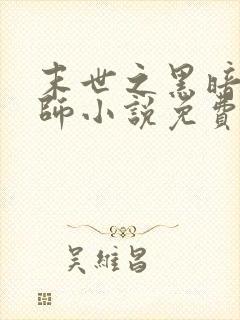 末世之黑暗
師小說免費
吳維昌